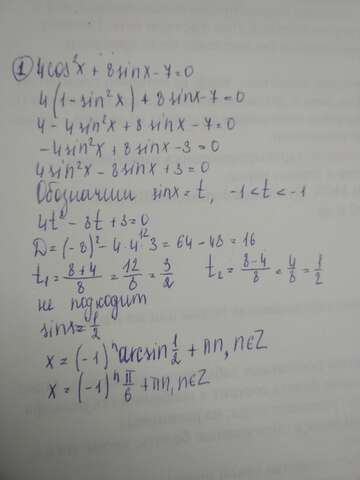 1 4cos²x + 8sinx - 7 = 0
4(1 - sin²x) + 8sinx - 7 = 0
4 - 4sin²x + 8sinx - 7 = 0
-4sin²x + 8sinx - 3 = 0
4sin²x - 8sinx + 3 = 0
Обозначим sinx = t, -1 < t < -1
4t² - 8t + 3 = 0
D = (-8)² - 4·4·3 = 64 - 48 = 16
t₁ = (8+4)/8 = 12/8 = 3/2 t₂ = (8-4)/8 = 4/8 = 1/2
не подходит
sinx = 1/2
x = (-1)ⁿ arcsin 1/2 + πn, n∈Z
x = (-1)ⁿ π/6 + πn, n∈Z